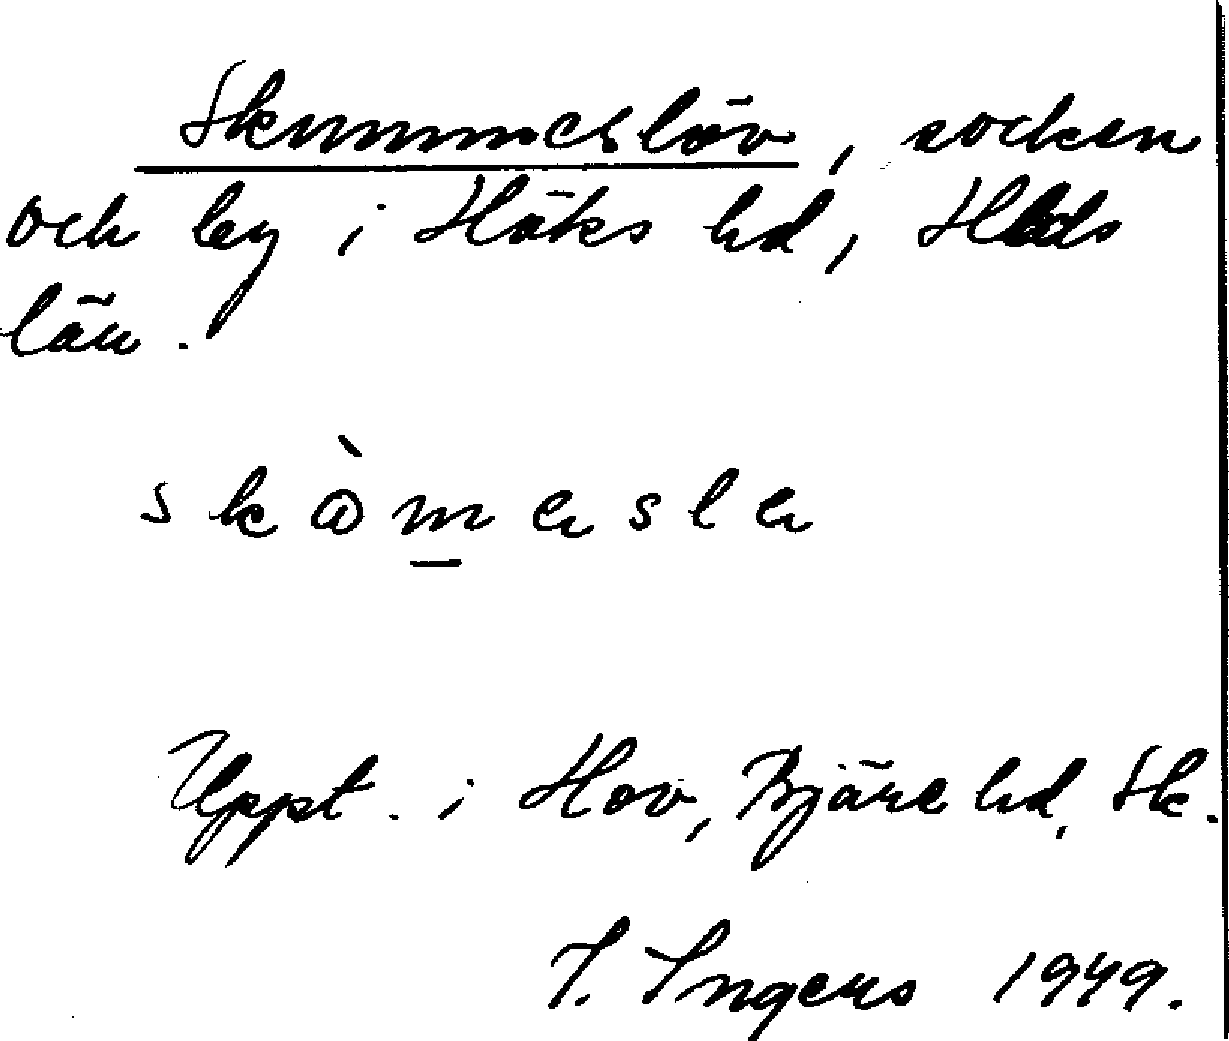 Skummeslöv, socken
och by i Höks hd, Hlds
län.
skòmesle
Uppt. i Hov, Bjäre hd, Sk.
I. Ingers 1949.